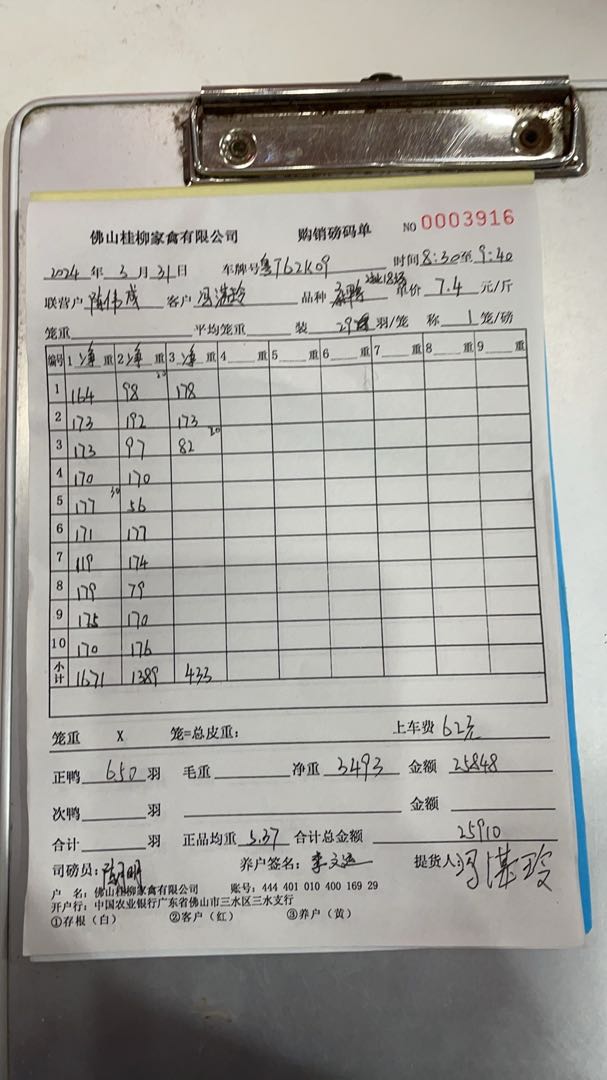 佛山桂柳家禽有限公司 购销磅码单 NO 0003916
2024 年 3 月 31 日 车牌号 粤T62K09 时间 8:30 至 9:40
联营户 陈伟成 客户 品种 单价 7.4 元/斤
笼重 平均笼重 装 29 羽/笼 称 1 笼/磅
编号 1 净 重 2 净 重 3 净 重 4 重 5 重 6 重 7 重 8 重 9 重
1 164 98 20 178
2 173 192 173
3 173 97 82 20
4 170 170
5 177 30 56
6 171 177
7 119 174
8 179 79
9 175 170
10 170 176
小计 1671 1389 433
笼重 X 笼=总皮重: 上车费 62元
正鸭 650 羽 毛重 净重 3493 金额 25848
次鸭 羽 金额
合计 羽 正品均重 5.37 合计总金额 25910
司磅员: 养户签名: 提货人:
户 名: 佛山桂柳家禽有限公司 账号: 444 401 010 400 169 29
开户行: 中国农业银行广东省佛山市三水区三水支行
①存根（白） ②客户（红） ③养户（黄）